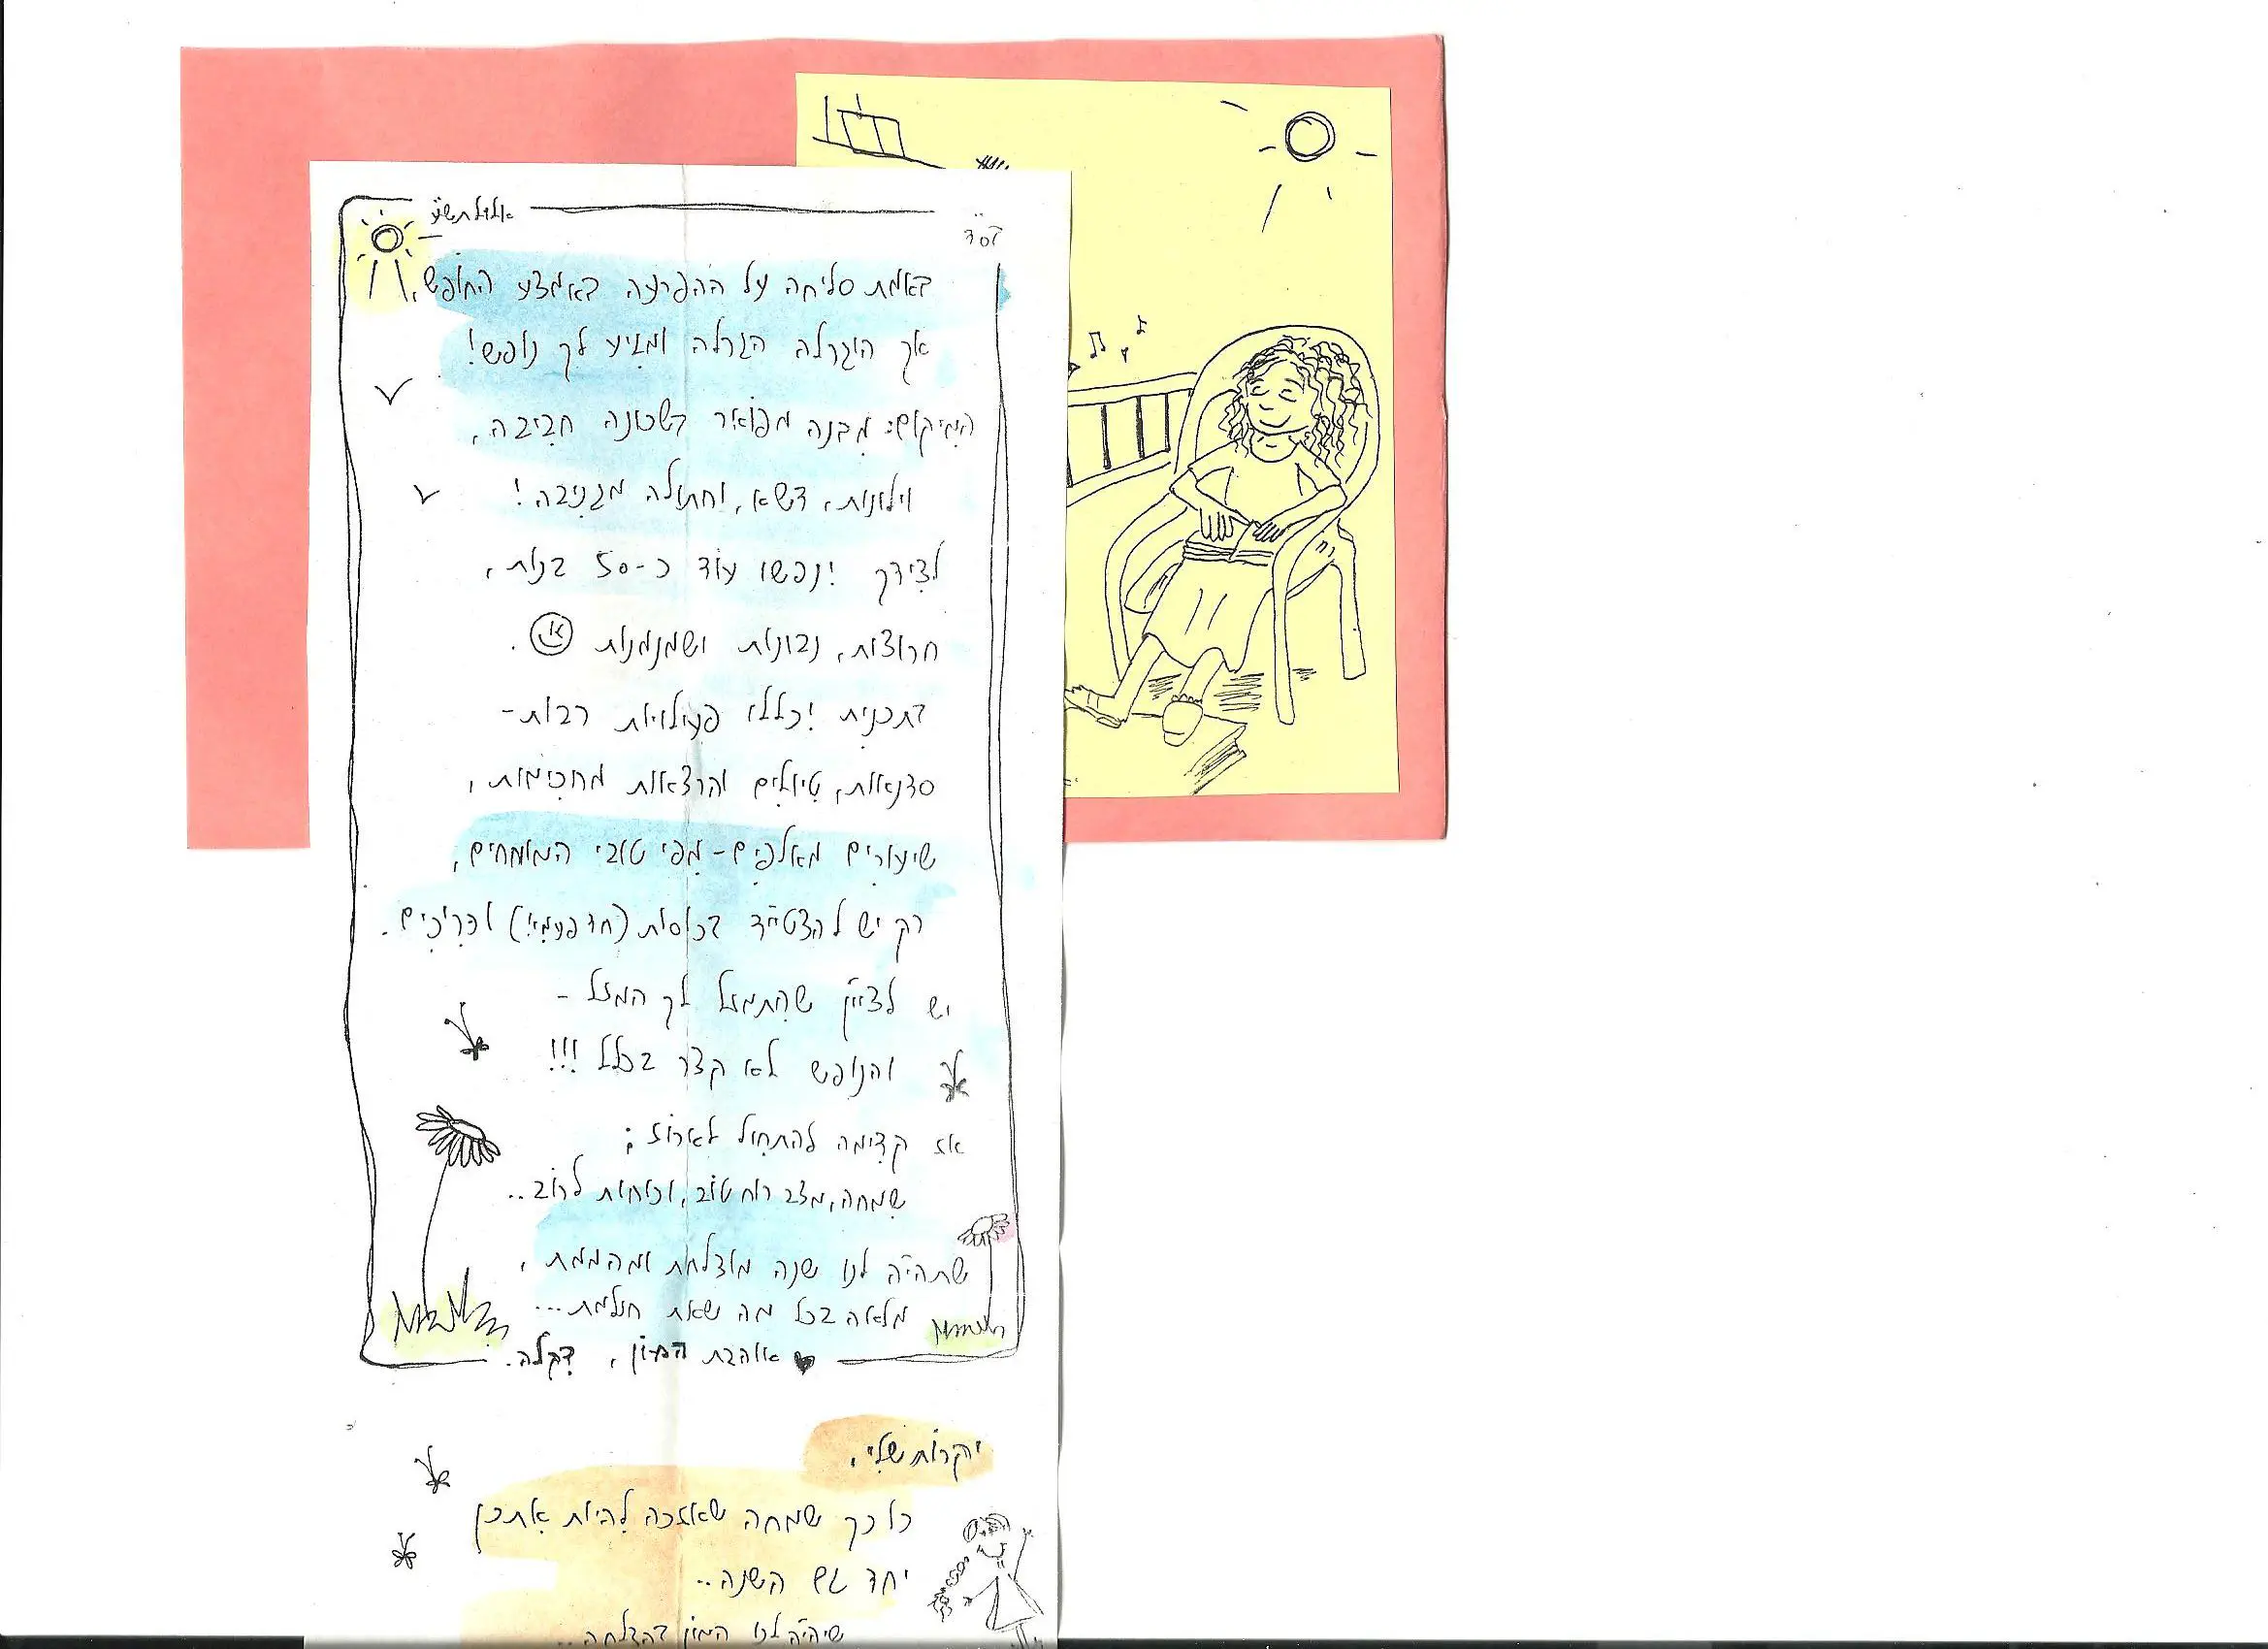 בס"ד
אלול תש"ע
באמת סליחה על ההפרעה באמצע החופש,
אך הוגרלה הגרלה ומגיע לך נופש!
המיקום: מבנה מפואר בשכונה חביבה,
וילונות, דשא, וחתולה מגניבה!
לצידך ינפשו עוד כ-50 בנות,
חרוצות, נבונות ושמנמנות.
בתכנית יכללו פעילויות רבות-
סדנאות, טיולים והרצאות מחכימות,
שיעורים מאלפים - מפי טובי המומחים,
רק יש להצטייד בכוסות (חד פעמי!) וכריכים.
יש לציין שהתמזל לך המזל -
והנופש לא קצר בכלל!!!
אז קדימה להתחיל לארוז:
שמחה, מצב רוח טוב, וכוחות לרוב..
שתהיה לנו שנה מוצלחת ומהממת,
מלאה בכל מה שאת חולמת...
אוהבת המון, דקלה.
יקרות שלי,
כל כך שמחה שאזכה להיות אתכן
יחד גם השנה..
שיהיה לנו המון בהצלחה..